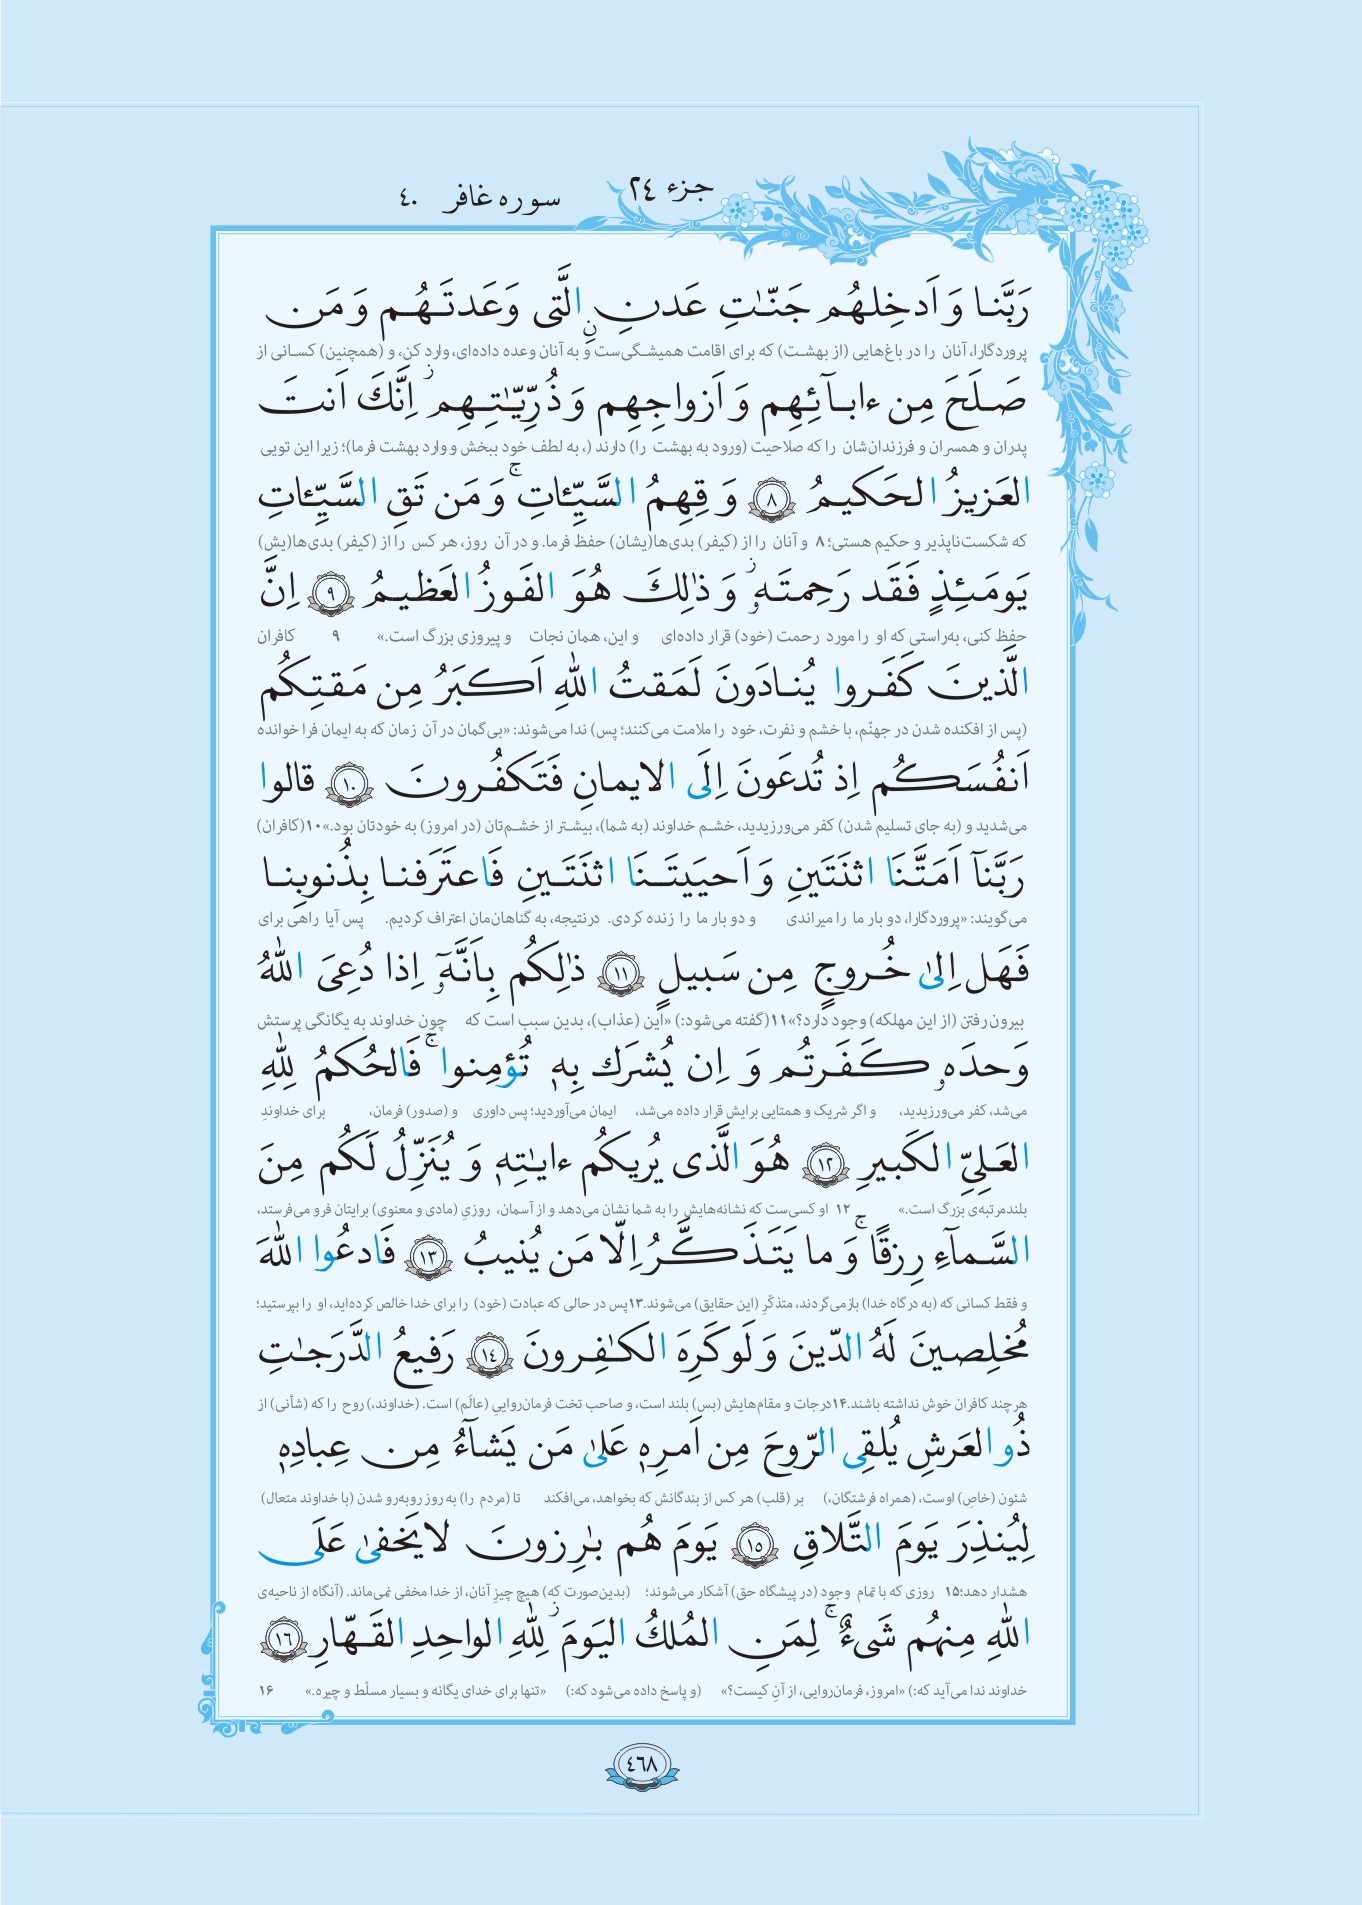 جزء ٢٤
سوره غافر ٤٠
رَبَّنا وَ اَدخِلهُم جَنّـٰتِ عَدنٍ الَّتی وَعَدتَـهُـم وَ مَن
پروردگارا، آنان را در باغ‌هایی (از بهشت) که برای اقامت همیشگی‌ست و به آنان وعده داده‌ای، وارد کن، و (همچنین) کسانی از
صَلَحَ مِن ءابـآئِهِم وَ اَزواجِهِم وَ ذُرِّیّـٰتِـهِم ۚ اِنَّكَ اَنتَ
پدران و همسران و فرزندان‌شان را که صلاحیت (ورود به بهشت را) دارند (، به لطف خود ببخش و وارد بهشت فرما)؛ زیرا این تویی
العَزیزُ الحَکیمُ ٨ وَ قِهِمُ السَّیِّـٔاتِ ۚ وَ مَن تَقِ السَّیِّـٔاتِ
که شکست‌ناپذیر و حکیم هستی؛ ۸ و آنان را از (کیفر) بدی‌ها(یشان) حفظ فرما. و در آن روز، هر کس را از (کیفر) بدی‌ها(یش)
یَومَئِذٍ فَقَد رَحِمتَهٗ ۚ وَ ذٰلِكَ هُوَ الفَوزُ العَظیمُ ٩ اِنَّ
حفظ کنی، به‌راستی که او را مورد رحمت (خود) قرار داده‌ای و این، همان نجات و پیروزی بزرگ است.» ۹ کافران
الَّذینَ کَفَروا یُنـادَونَ لَمَقتُ اللّٰهِ اَکبَرُ مِن مَقتِکُم
(پس از افکنده شدن در جهنّم، با خشم و نفرت، خود را ملامت می‌کنند؛ پس) ندا می‌شوند: «بی‌گمان در آن زمان که به ایمان فرا خوانده
اَنفُسَکُم اِذ تُدعَونَ اِلَی الایمانِ فَتَکفُرونَ ١٠ قالوا
می‌شدید و (به جای تسلیم شدن) کفر می‌ورزیدید، خشم خداوند (به شما)، بیشتر از خشم‌تان (در امروز) به خودتان بود.» ۱۰ (کافران)
رَبَّنآ اَمَتَّنَا اثنَتَینِ وَ اَحیَیتَـنَا اثنَتَـینِ فَاعتَرَفنا بِذُنوبِنا
می‌گویند: «پروردگارا، دو بار ما را میراندی و دو بار ما را زنده کردی. درنتیجه، به گناهان‌مان اعتراف کردیم. پس آیا راهی برای
فَهَل اِلیٰ خُروجٍ مِن سَبیلٍ ١١ ذٰلِکُم بِاَنَّهٗٓ اِذا دُعِیَ اللّٰهُ
بیرون رفتن (از این مهلکه) وجود دارد؟» ۱۱ (گفته می‌شود:) «این (عذاب)، بدین سبب است که چون خداوند به یگانگی پرستش
وَحدَهٗ کَفَرتُم وَ اِن یُشرَك بِهٖ تُؤمِنوا ۚ فَالحُکمُ لِلّٰهِ
می‌شد، کفر می‌ورزیدید، و اگر شریک و همتایی برایش قرار داده می‌شد، ایمان می‌آوردید؛ پس داوری و (صدور) فرمان، برای خداوندِ
العَلِیِّ الکَبیرِ ١٢ هُوَ الَّذی یُریکُم ءایـٰتِهٖ وَ یُنَزِّلُ لَکُم مِنَ
بلندمرتبه‌ی بزرگ است.» ۱۲ او کسی‌ست که نشانه‌هایش را به شما نشان می‌دهد و از آسمان، روزیِ (مادی و معنوی) برایتان فرو می‌فرستد،
السَّمآءِ رِزقًا ۚ وَ ما یَتَذَکَّرُ اِلّا مَن یُنیبُ ١٣ فَادعُوا اللّٰهَ
و فقط کسانی که (به درگاه خدا) بازمی‌گردند، متذکّرِ (این حقایق) می‌شوند. ۱۳ پس در حالی که عبادت (خود) را برای خدا خالص کرده‌اید، او را بپرستید؛
مُخلِصینَ لَهُ الدّینَ وَ لَو کَرِهَ الکـٰفِرونَ ١٤ رَفیعُ الدَّرَجـٰتِ
هرچند کافران خوش نداشته باشند. ۱۴ درجات و مقام‌هایش (بس) بلند است، و صاحب تخت فرمان‌رواییِ (عالَم) است. (خداوند،) روح را که (شأنی) از
ذُو العَرشِ یُلقِی الرّوحَ مِن اَمرِهٖ عَلیٰ مَن یَشآءُ مِن عِبادِهٖ
شئون (خاصِ) اوست، (همراه فرشتگان،) بر (قلب) هر کس از بندگانش که بخواهد، می‌افکند تا (مردم را) به روز روبه‌رو شدن (با خداوند متعال)
لِیُنذِرَ یَومَ التَّلاقِ ١٥ یَومَ هُم بـٰرِزونَ لا یَخفیٰ عَلَی
هشدار دهد؛ ۱۵ روزی که با تمام وجود (در پیشگاه حق) آشکار می‌شوند؛ (بدین‌صورت که) هیچ چیزِ آنان، از خدا مخفی نمی‌ماند. (آنگاه از ناحیه‌ی
اللّٰهِ مِنهُم شَیءٌ ۚ لِمَنِ المُلكُ الیَومَ ۖ لِلّٰهِ الواحِدِ القَهّارِ ١٦
خداوند ندا می‌آید که:) «امروز، فرمان‌روایی، از آنِ کیست؟» (و پاسخ داده می‌شود که:) «تنها برای خدای یگانه و بسیار مسلّط و چیره.» ۱۶
٤٦٨